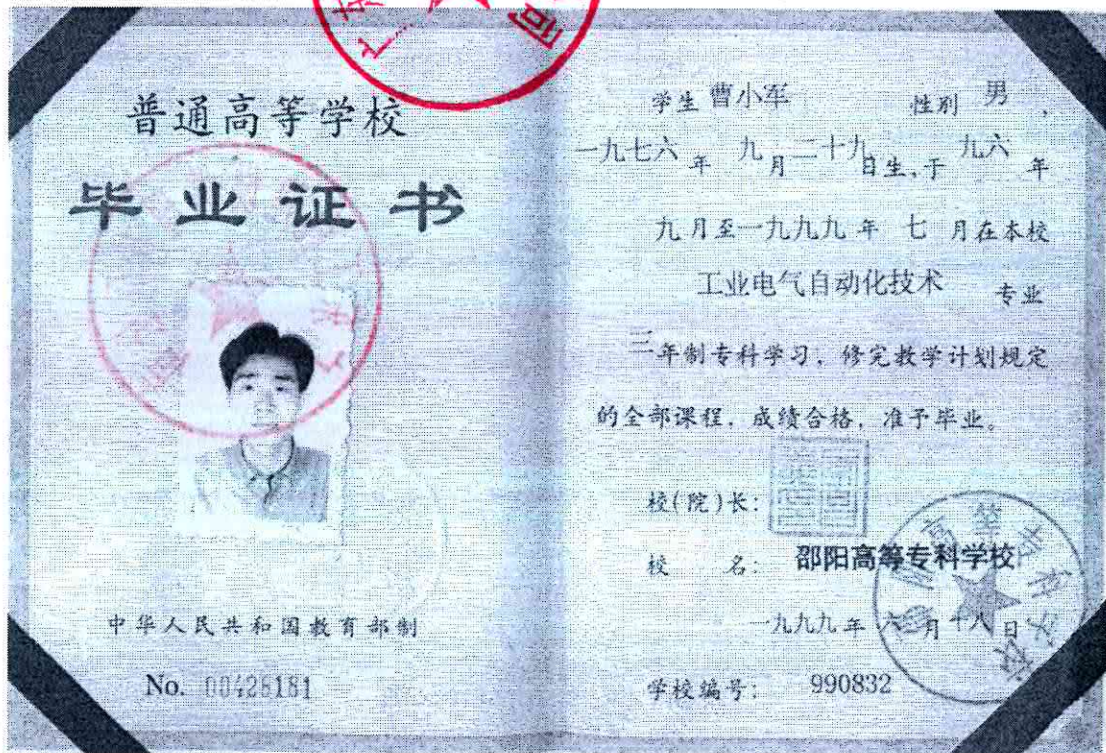 普通高等学校
毕业证书
中华人民共和国教育部制
No. 00428181
学生 曹小军 性别 男 ,
一九七六 年 九 月 二十九 日生, 于 九六 年
九月至一九九九年 七 月在本校
工业电气自动化技术 专业
三年制专科学习, 修完教学计划规定
的全部课程, 成绩合格, 准予毕业。
校(院)长:
校 名: 邵阳高等专科学校
一九九九年 六 月 十八 日
学校编号: 990832